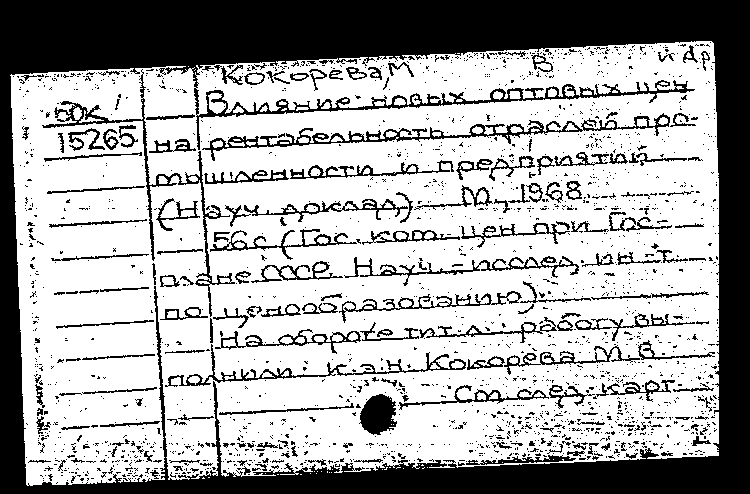 Кокорева, М В и др
Влияние новых оптовых цен
15265
на рентабельность отраслей про-
мышленности и предприятий.
(Науч. доклад,) М., 1968
56 с (Гос. ком. цен при Гос-
плане СССР. Науч.-исслед. ин-т
по ценообразованию).
На обороте тит. л.: работу вы-
полнили: к.э.н. Кокорева М. В.
См след. карт.